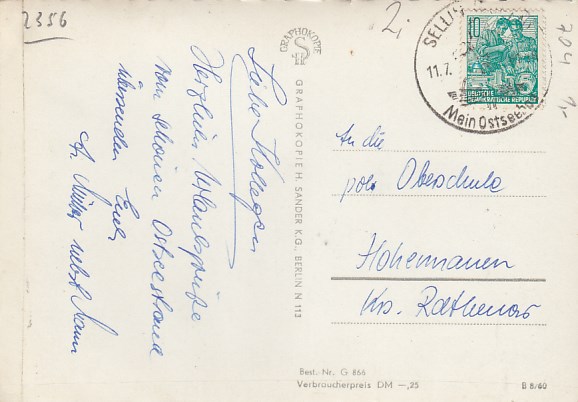 2356
2,-
704
1,-
Liebe Kollegen
Herzliche Urlaubsgrüße
vom schönen Ostseestrand
übersendet Euch
nebst Mann
GRAPHOKOPIE
GRAPHOKOPIE H. SANDER K.G., BERLIN N 113
SELLIN
11.7.
Mein Ostsee
10
5
DEUTSCHE
DEMOKRATISCHE REPUBLIK
An die
Oberschule
Hohennauen
Krs. Rathenow
Best.-Nr. G 866
Verbraucherpreis DM —,25
B 8/60